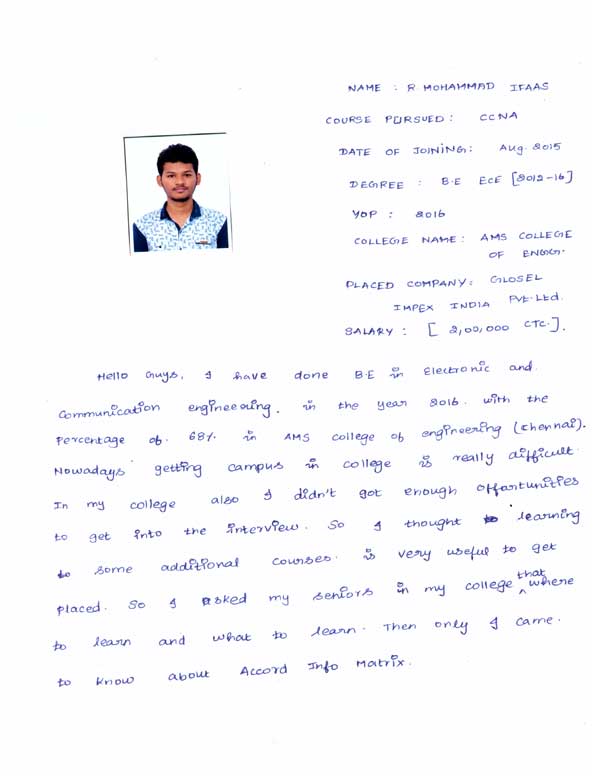 NAME : R. MOHAMMAD IFAAS
COURSE PURSUED : CCNA
DATE OF JOINING : Aug. 2015
DEGREE : B.E ECE [2012-16]
YOP : 2016
COLLEGE NAME : AMS COLLEGE
OF ENGG.
PLACED COMPANY : GLOSEL
IMPEX INDIA Pvt.Ltd.
SALARY : [ 2,00,000 CTC.].
Hello Guys, I have done B.E in Electronic and
Communication engineering. in the year 2016. with the
Percentage of. 68%. in AMS college of engineering (chennai).
Nowadays getting campus in college is really difficult.
In my college also I didn't got enough offartunities
to get into the interview. So I thought learning
to some additional courses. is very useful to get
placed. So I asked my seniors in my college that where
to learn and what to learn. Then only I came.
to know about Accord Info Matrix.